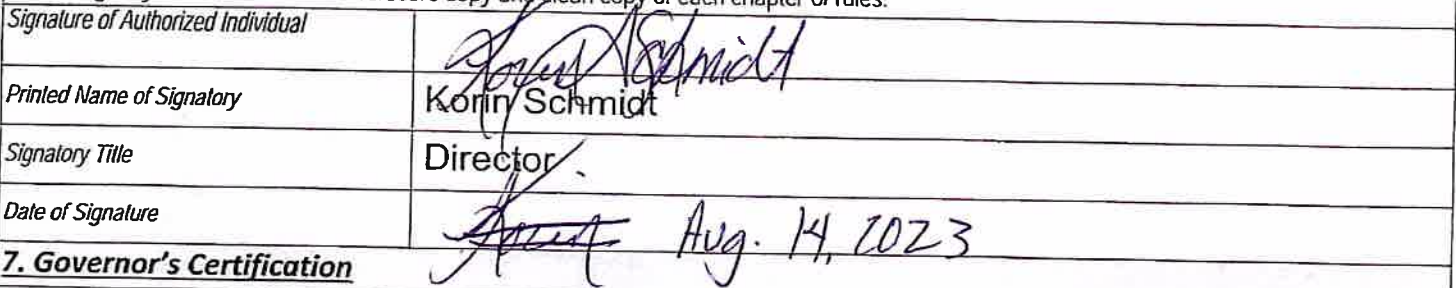 copy and clean copy of each chapter of rules.
Signature of Authorized Individual
Schmidt
Printed Name of Signatory Korin Schmidt
Signatory Title Director
Date of Signature Aug. 14, 2023
7. Governor's Certification